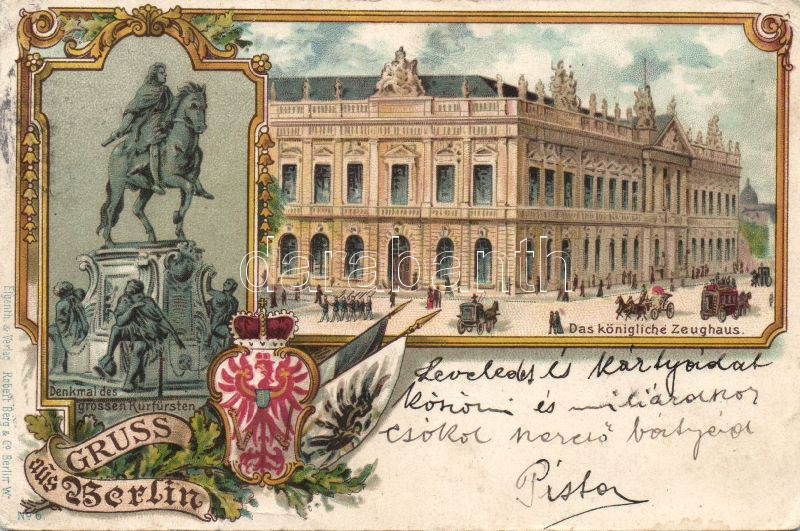 Das königliche Zeughaus.
Denkmal des
grossen Kurfürsten.
GRUSS
aus Berlin
No 6
Eigenth. & Verlag Robert Berg & Co Berlin W
darabanth
Leveledet és kártyáidat
és
csókol
Pista